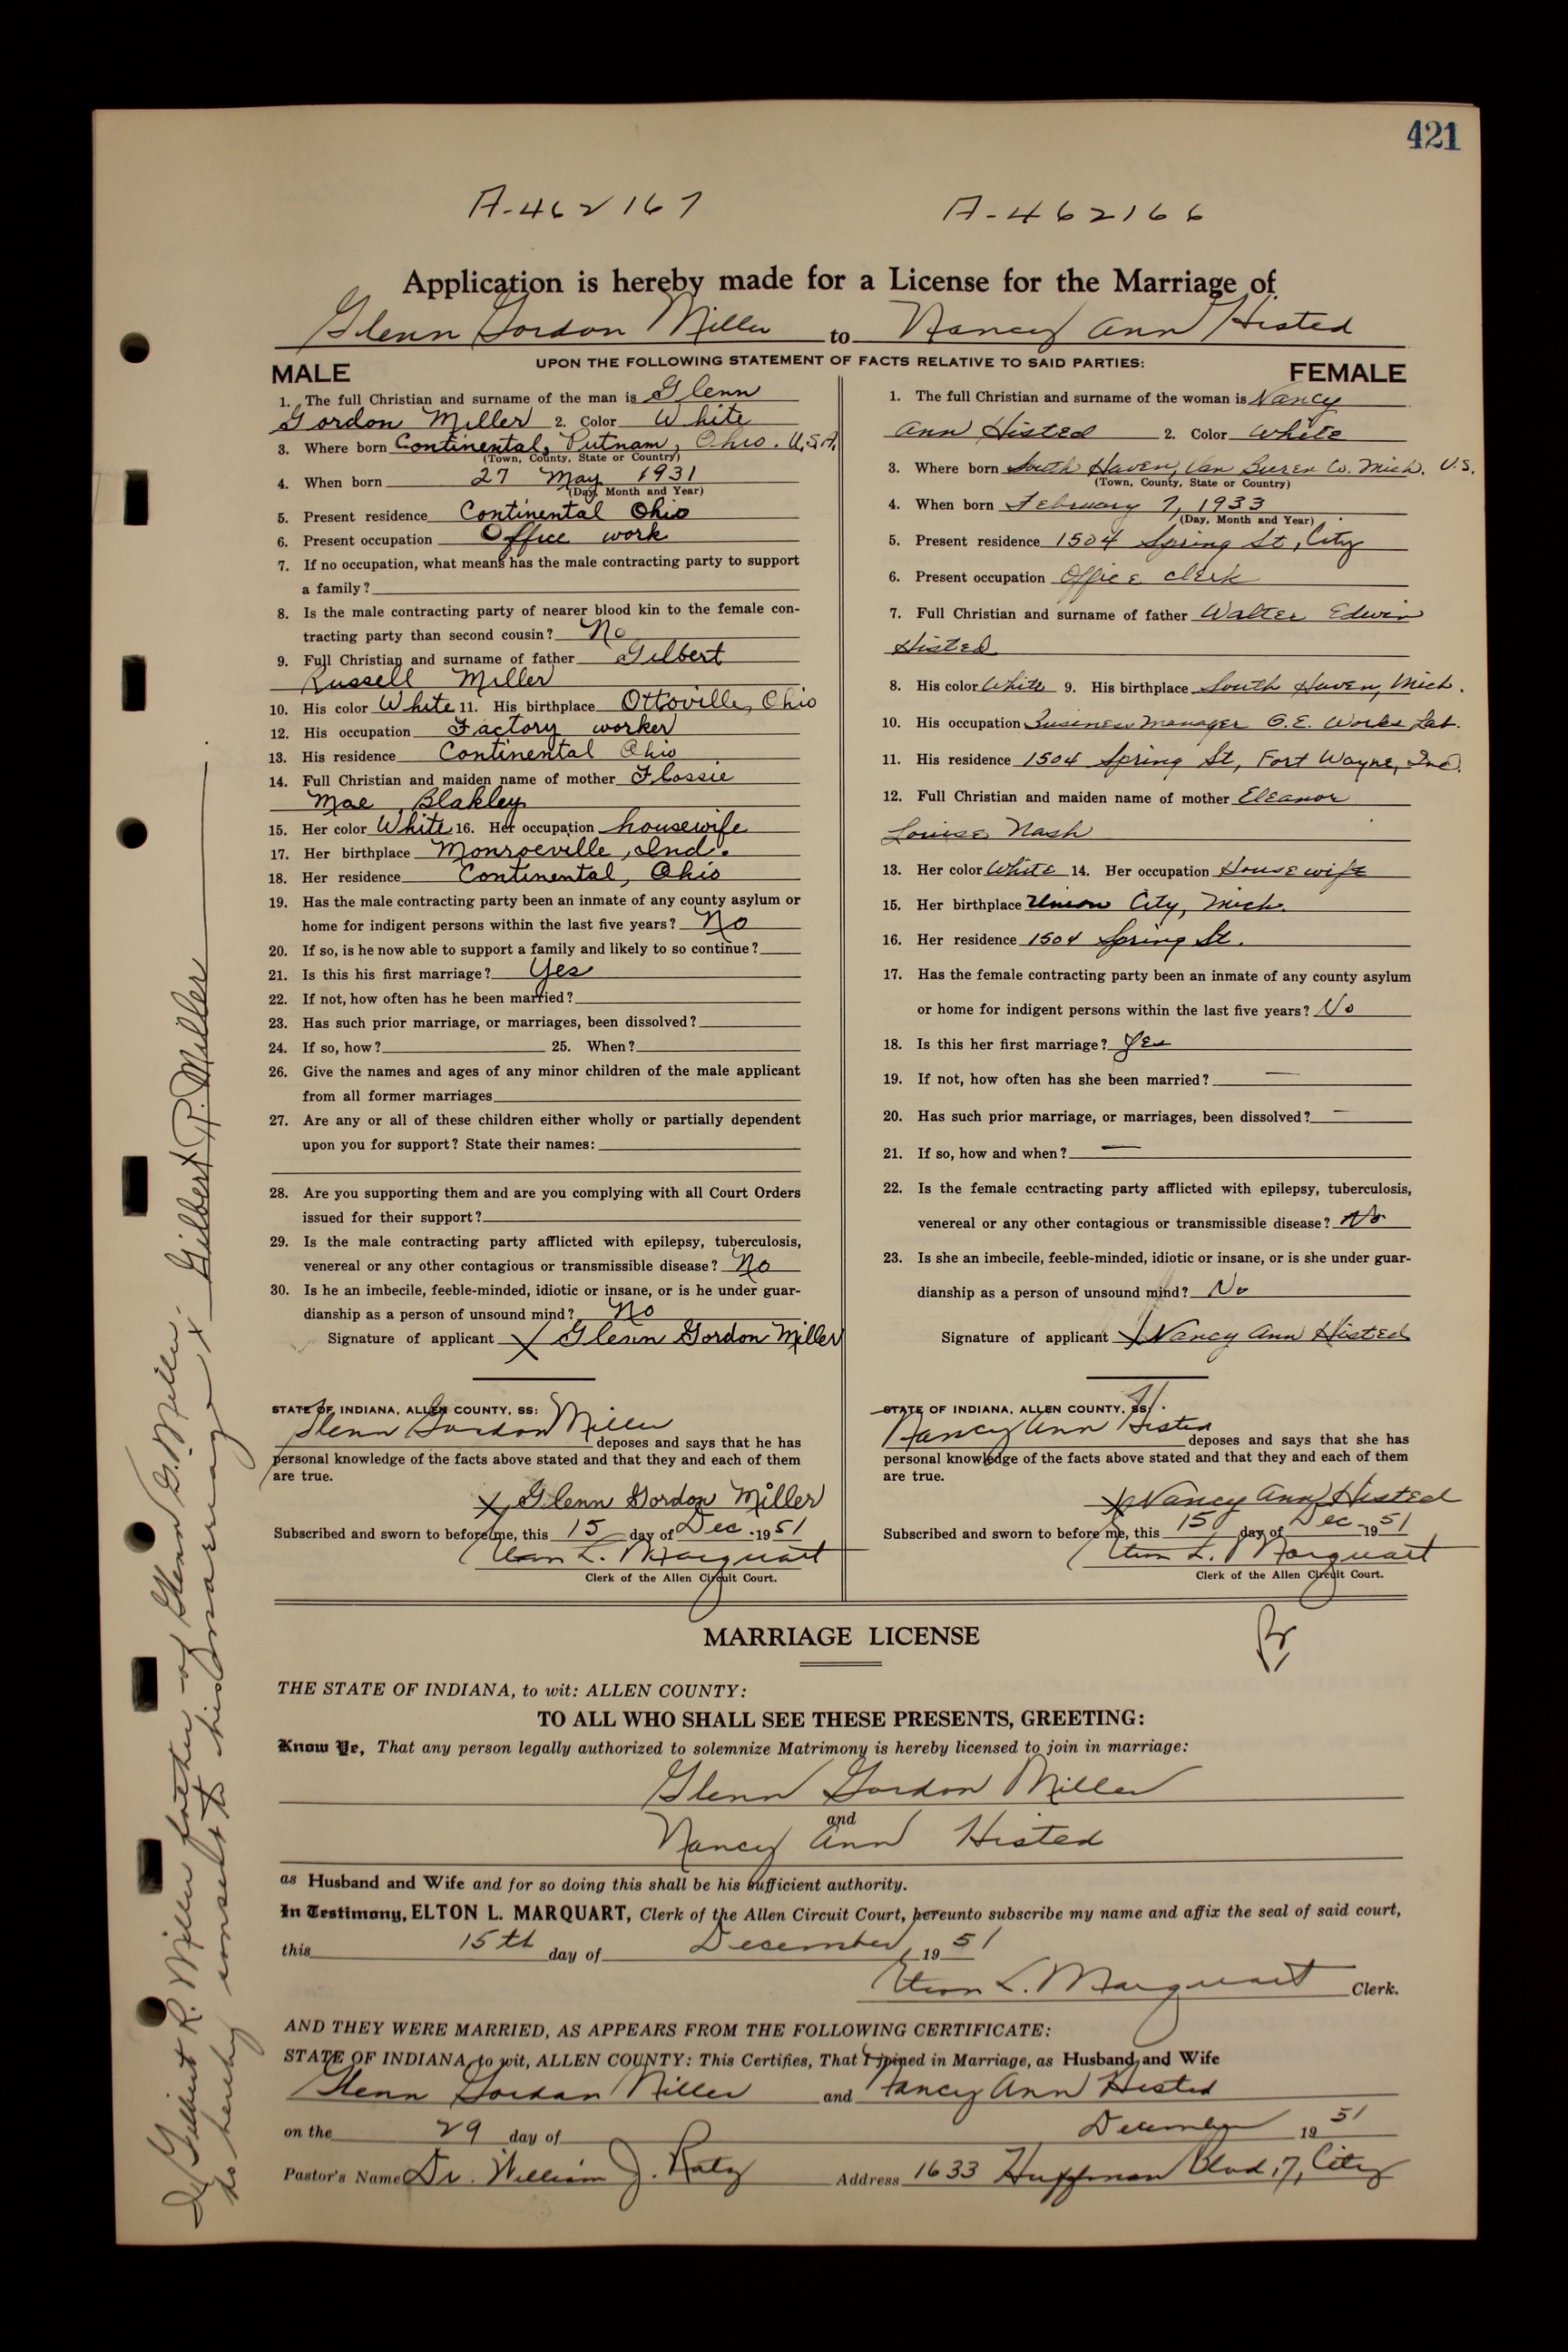 421
A-462167 A-462166
Application is hereby made for a License for the Marriage of
Glenn Gordon Miller to Nancy Ann Histed
UPON THE FOLLOWING STATEMENT OF FACTS RELATIVE TO SAID PARTIES:
MALE
1. The full Christian and surname of the man is Glenn
Gordon Miller 2. Color White
3. Where born Continental, Putnam, Ohio. U.S.A.
(Town, County, State or Country)
4. When born 27 May 1931
(Day, Month and Year)
5. Present residence Continental Ohio
6. Present occupation Office work
7. If no occupation, what means has the male contracting party to support
a family?
8. Is the male contracting party of nearer blood kin to the female con-
tracting party than second cousin? No
9. Full Christian and surname of father Gilbert
Russell Miller
10. His color White 11. His birthplace Ottoville, Ohio
12. His occupation Factory worker
13. His residence Continental Ohio
14. Full Christian and maiden name of mother Flossie
Mae Blakley
15. Her color White 16. Her occupation housewife
17. Her birthplace Monroeville, Ind.
18. Her residence Continental, Ohio
19. Has the male contracting party been an inmate of any county asylum or
home for indigent persons within the last five years? No
20. If so, is he now able to support a family and likely to so continue?
21. Is this his first marriage? Yes
22. If not, how often has he been married?
23. Has such prior marriage, or marriages, been dissolved?
24. If so, how? 25. When?
26. Give the names and ages of any minor children of the male applicant
from all former marriages
27. Are any or all of these children either wholly or partially dependent
upon you for support? State their names:
28. Are you supporting them and are you complying with all Court Orders
issued for their support?
29. Is the male contracting party afflicted with epilepsy, tuberculosis,
venereal or any other contagious or transmissible disease? No
30. Is he an imbecile, feeble-minded, idiotic or insane, or is he under guar-
dianship as a person of unsound mind? No
Signature of applicant X Glenn Gordon Miller
STATE OF INDIANA, ALLEN COUNTY, SS:
Glenn Gordon Miller
deposes and says that he has
personal knowledge of the facts above stated and that they and each of them
are true.
X Glenn Gordon Miller
Subscribed and sworn to before me, this 15 day of Dec. 1951
Elton L. Marquart
Clerk of the Allen Circuit Court.
FEMALE
1. The full Christian and surname of the woman is Nancy
Ann Histed 2. Color White
3. Where born South Haven, Van Buren Co. Mich. U.S.
(Town, County, State or Country)
4. When born February 7, 1933
(Day, Month and Year)
5. Present residence 1504 Spring St, City
6. Present occupation Office clerk
7. Full Christian and surname of father Walter Edwin
Histed
8. His color White 9. His birthplace South Haven, Mich.
10. His occupation Business Manager G.E. Works Lab.
11. His residence 1504 Spring St, Fort Wayne, Ind.
12. Full Christian and maiden name of mother Eleanor
Louise Nash
13. Her color White 14. Her occupation Housewife
15. Her birthplace Union City, Mich.
16. Her residence 1504 Spring St.
17. Has the female contracting party been an inmate of any county asylum
or home for indigent persons within the last five years? No
18. Is this her first marriage? Yes
19. If not, how often has she been married? —
20. Has such prior marriage, or marriages, been dissolved? —
21. If so, how and when? —
22. Is the female contracting party afflicted with epilepsy, tuberculosis,
venereal or any other contagious or transmissible disease? No
23. Is she an imbecile, feeble-minded, idiotic or insane, or is she under guar-
dianship as a person of unsound mind? No
Signature of applicant X Nancy Ann Histed
STATE OF INDIANA, ALLEN COUNTY, SS:
Nancy Ann Histed
deposes and says that she has
personal knowledge of the facts above stated and that they and each of them
are true.
X Nancy Ann Histed
Subscribed and sworn to before me, this 15 day of Dec. 1951
Elton L. Marquart
Clerk of the Allen Circuit Court.
MARRIAGE LICENSE
THE STATE OF INDIANA, to wit: ALLEN COUNTY:
TO ALL WHO SHALL SEE THESE PRESENTS, GREETING:
Know Ye, That any person legally authorized to solemnize Matrimony is hereby licensed to join in marriage:
Glenn Gordon Miller
and
Nancy Ann Histed
as Husband and Wife and for so doing this shall be his sufficient authority.
In Testimony, ELTON L. MARQUART, Clerk of the Allen Circuit Court, hereunto subscribe my name and affix the seal of said court,
this 15th day of December, 1951
Elton L. Marquart Clerk.
AND THEY WERE MARRIED, AS APPEARS FROM THE FOLLOWING CERTIFICATE:
STATE OF INDIANA, to wit, ALLEN COUNTY: This Certifies, That I joined in Marriage, as Husband and Wife
Glenn Gordon Miller and Nancy Ann Histed
on the 29 day of December 1951
Pastor's Name Dr. William J. Ratz Address 1633 Huffman Blvd, 7, City
I, Gilbert R. Miller father of Glenn G. Miller.
do hereby consent to his marriage X Gilbert R. Miller